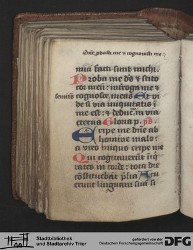 Dñe pbasti me ⁊ cognouisti me
mici facti sunt michi.
Proba me ds̄ et scito
cor meū: interroga me et
cognosce
semitas
Et vi-
de si via iniquitatis ī
me est: et deduc me in via
eterna Gloria p. ps.
Eripe me dn̄e ab
homīe malo:
a viro iniquo eripe me
Qui cogitauerūt īi-
tates in corde: tota die
constituebāt plia
erunt linguam sua
Stadtbibliothek
und Stadtarchiv Trier
gefördert von der
Deutschen Forschungsgemeinschaft
DFG